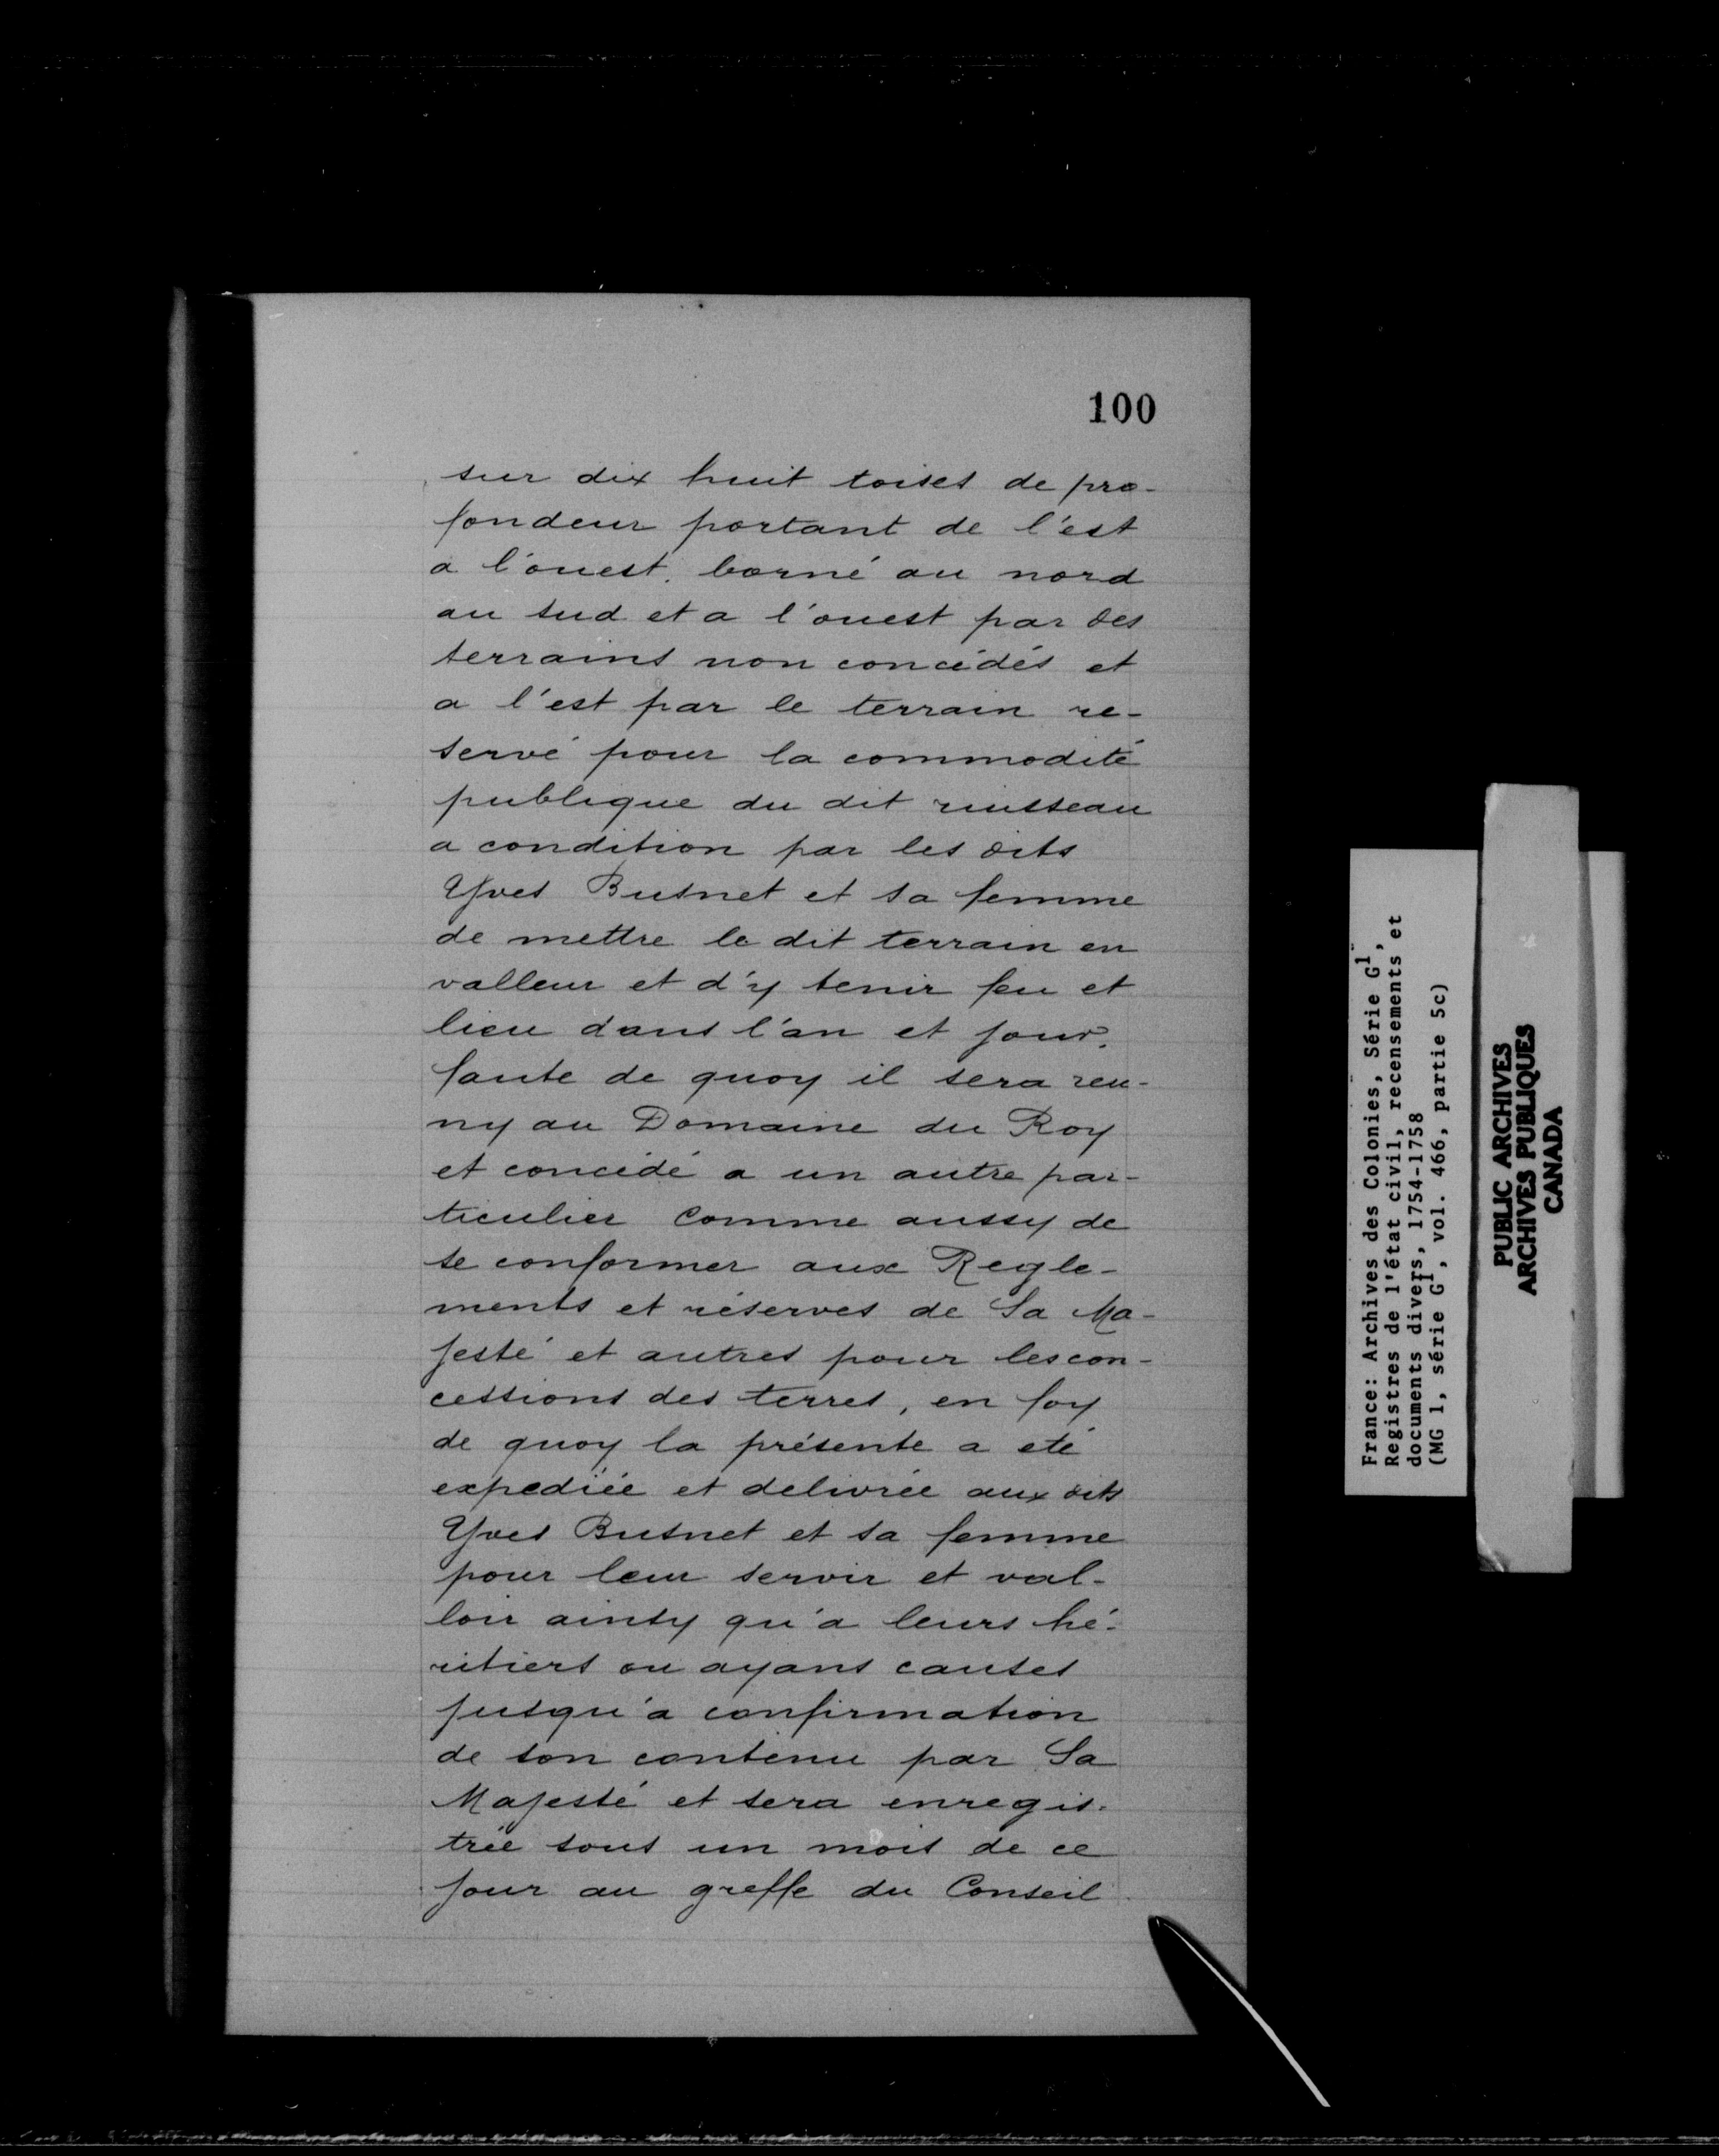 100
sur dix huit toises de pro-
fondeur portant de l'est
a l'ouest, borné au nord
au sud et a l'ouest par des
terrains non concédés et
a l'est par le terrain re-
servé pour la commodité
publique du dit ruisseau
a condition par les dits
Yves Busnet et sa femme
de mettre le dit terrain en
valleur et d'y tenir feu et
lieu dans l'an et jour,
faute de quoy il sera reu-
ny au Domaine du Roy
et concédé a un autre par-
ticulier comme aussy de
se conformer aux Regle-
ments et réserves de Sa Ma-
jesté et autres pour les con-
cessions des terres, en foy
de quoy la présente a eté
expediée et delivrée aux dits
Yves Busnet et sa femme
pour leur servir et val-
loir ainsy qu'a leurs hé-
ritiers ou ayans causes
jusqu'a confirmation
de son contenu par Sa
Majesté et sera enregis-
trée sous un mois de ce
jour au greffe du Conseil
France: Archives des Colonies, Série G1,
Registres de l'état civil, recensements et
documents divers, 1754-1758
(MG 1, série G1, vol. 466, partie 5c)
PUBLIC ARCHIVES
ARCHIVES PUBLIQUES
CANADA